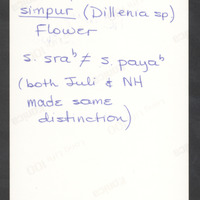 simpur (Dillenia sp)
Flower
s. sraᵇ ≠ s. payaᵇ
(both Juli & NH
made same
distinction)